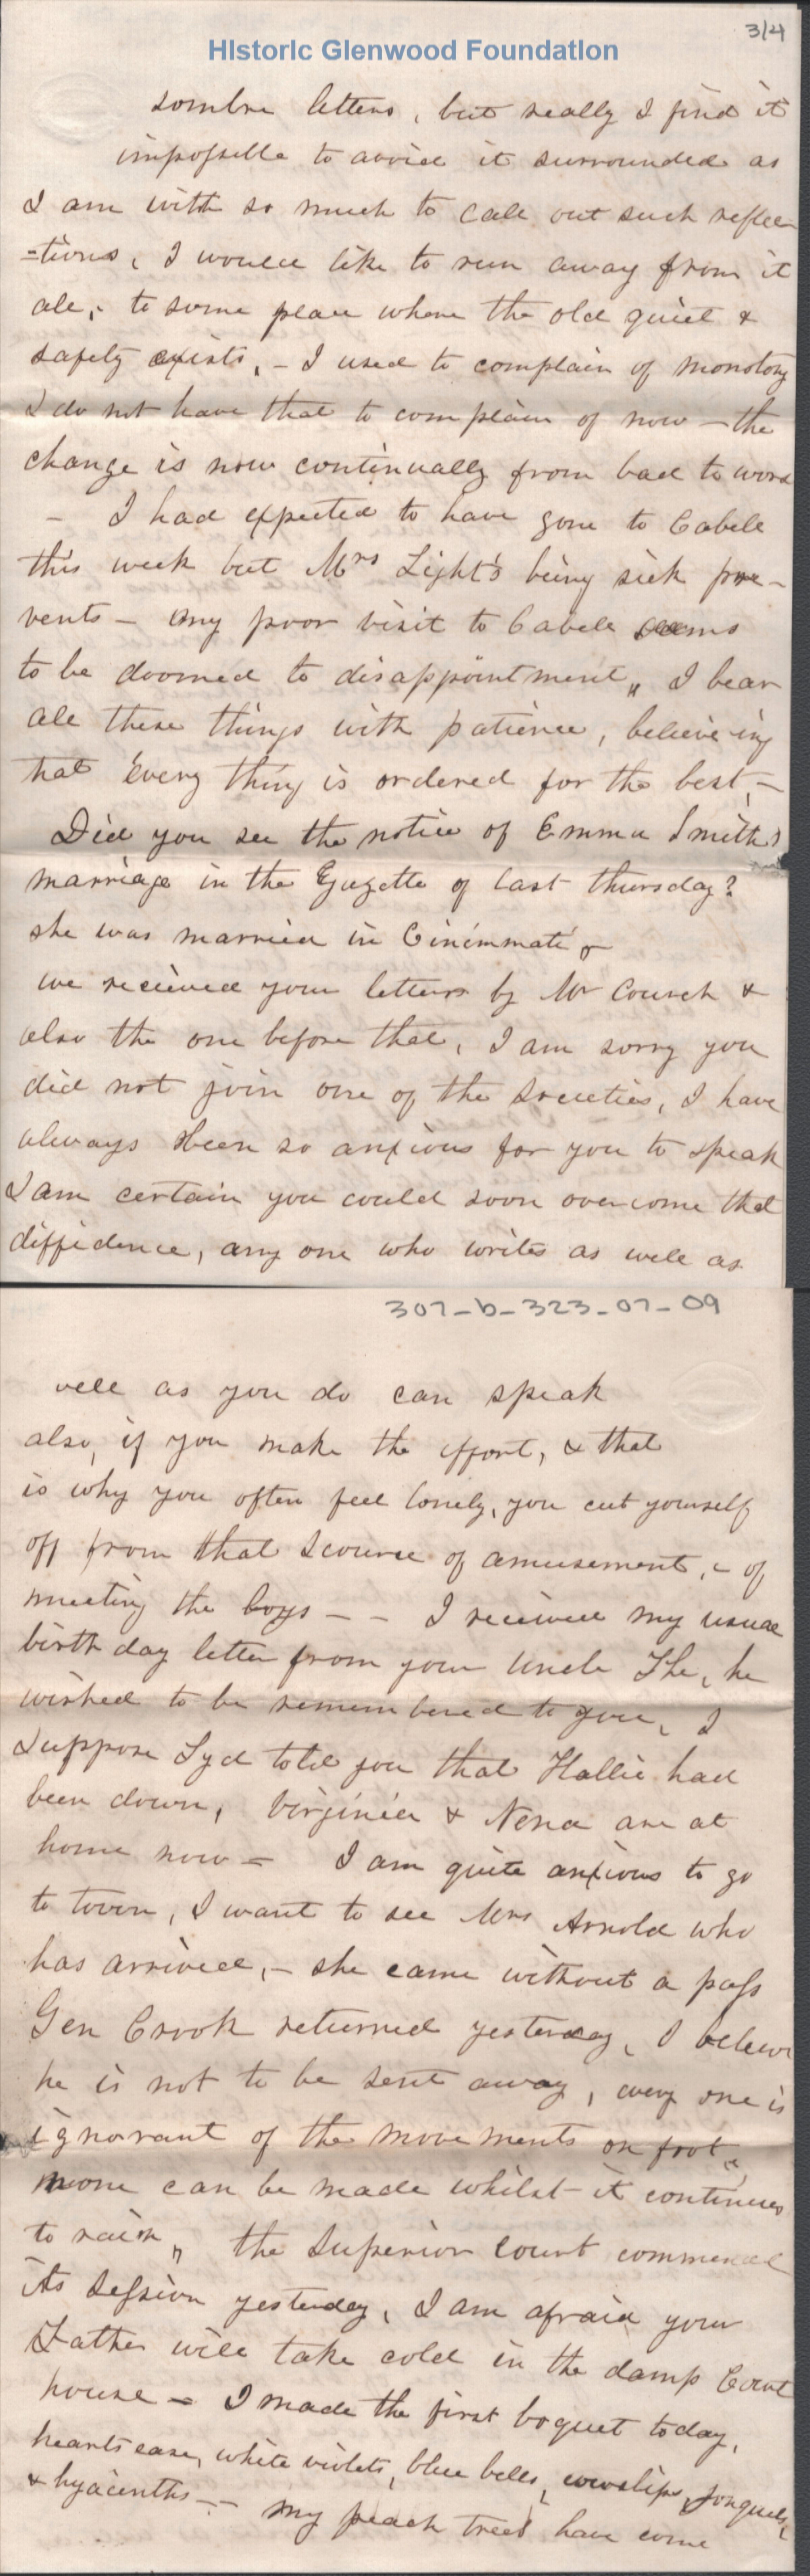 3/4
Historic Glenwood Foundation
sombre letters, but really I find it
impossible to avoid it surrounded as
I am with so much to call out such reflec
=tions, I would like to run away from it
all, - to some place where the old quiet &
safety exists, - I used to complain of monotony
I do not have that to complain of now - the
change is now continually from bad to worse
- I had expected to have gone to Cabell
this week but Mrs Light's being sick pre-
vents - my poor visit to Cabell seems
to be doomed to disappointment, I bear
all these things with patience, believeing
that every thing is ordered for the best, -
Did you see the notice of Emma Smith's
marriage in the Gazette of last thursday?
she was married in Cincinnati -
we received your letters by Mr Couch &
also the one before that, I am sorry you
did not join one of the Societies, I have
always been so anxious for you to speak
I am certain you could soon overcome that
diffidence, any one who writes as well as
307-b-323-07-09
well as you do can speak
also, if you make the effort, & that
is why you often feel lonely, you cut yourself
off from that source of amusement, - of
meeting the boys - - I received my usual
birth day letter from your Uncle The, he
wished to be remembered to you, I
suppose Syd told you that Hallie had
been down, Virginia & Nena are at
home now - I am quite anxious to go
to town, I want to see Mrs Arnold who
has arrived, - she came without a pass
Gen Crook returned yesterday, I believe
he is not to be sent away, every one is
ignorant of the movements on foot,
none can be made whilst it continues
to rain, the Superior Court commenced
its Session yesterday, I am afraid your
Father will take cold in the damp Court
house - I made the first boquet today,
heartsease, white violets, blue bells, cowslips, Jonquels,
& hyacinths - - my peach trees have come